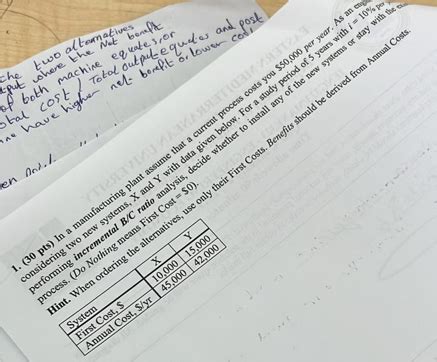 the two alternatives
put where the Net benefit
of both machine equates or
total cost, Total output equates and post
have higher net benefit or lower cost
1. (30 pts) In a manufacturing plant assume that a current process costs you $50,000 per year. As an
considering two new systems, X and Y with data given below. For a study period of 5 years with i = 10% per
performing incremental B/C ratio analysis, decide whether to install any of the new systems or stay with the
process. (Do Nothing means First Cost = $0).
Hint. When ordering the alternatives, use only their First Costs. Benefits should be derived from Annual Costs.
System X Y
First Cost, $ 10,000 15,000
Annual Cost, $/yr 45,000 42,000